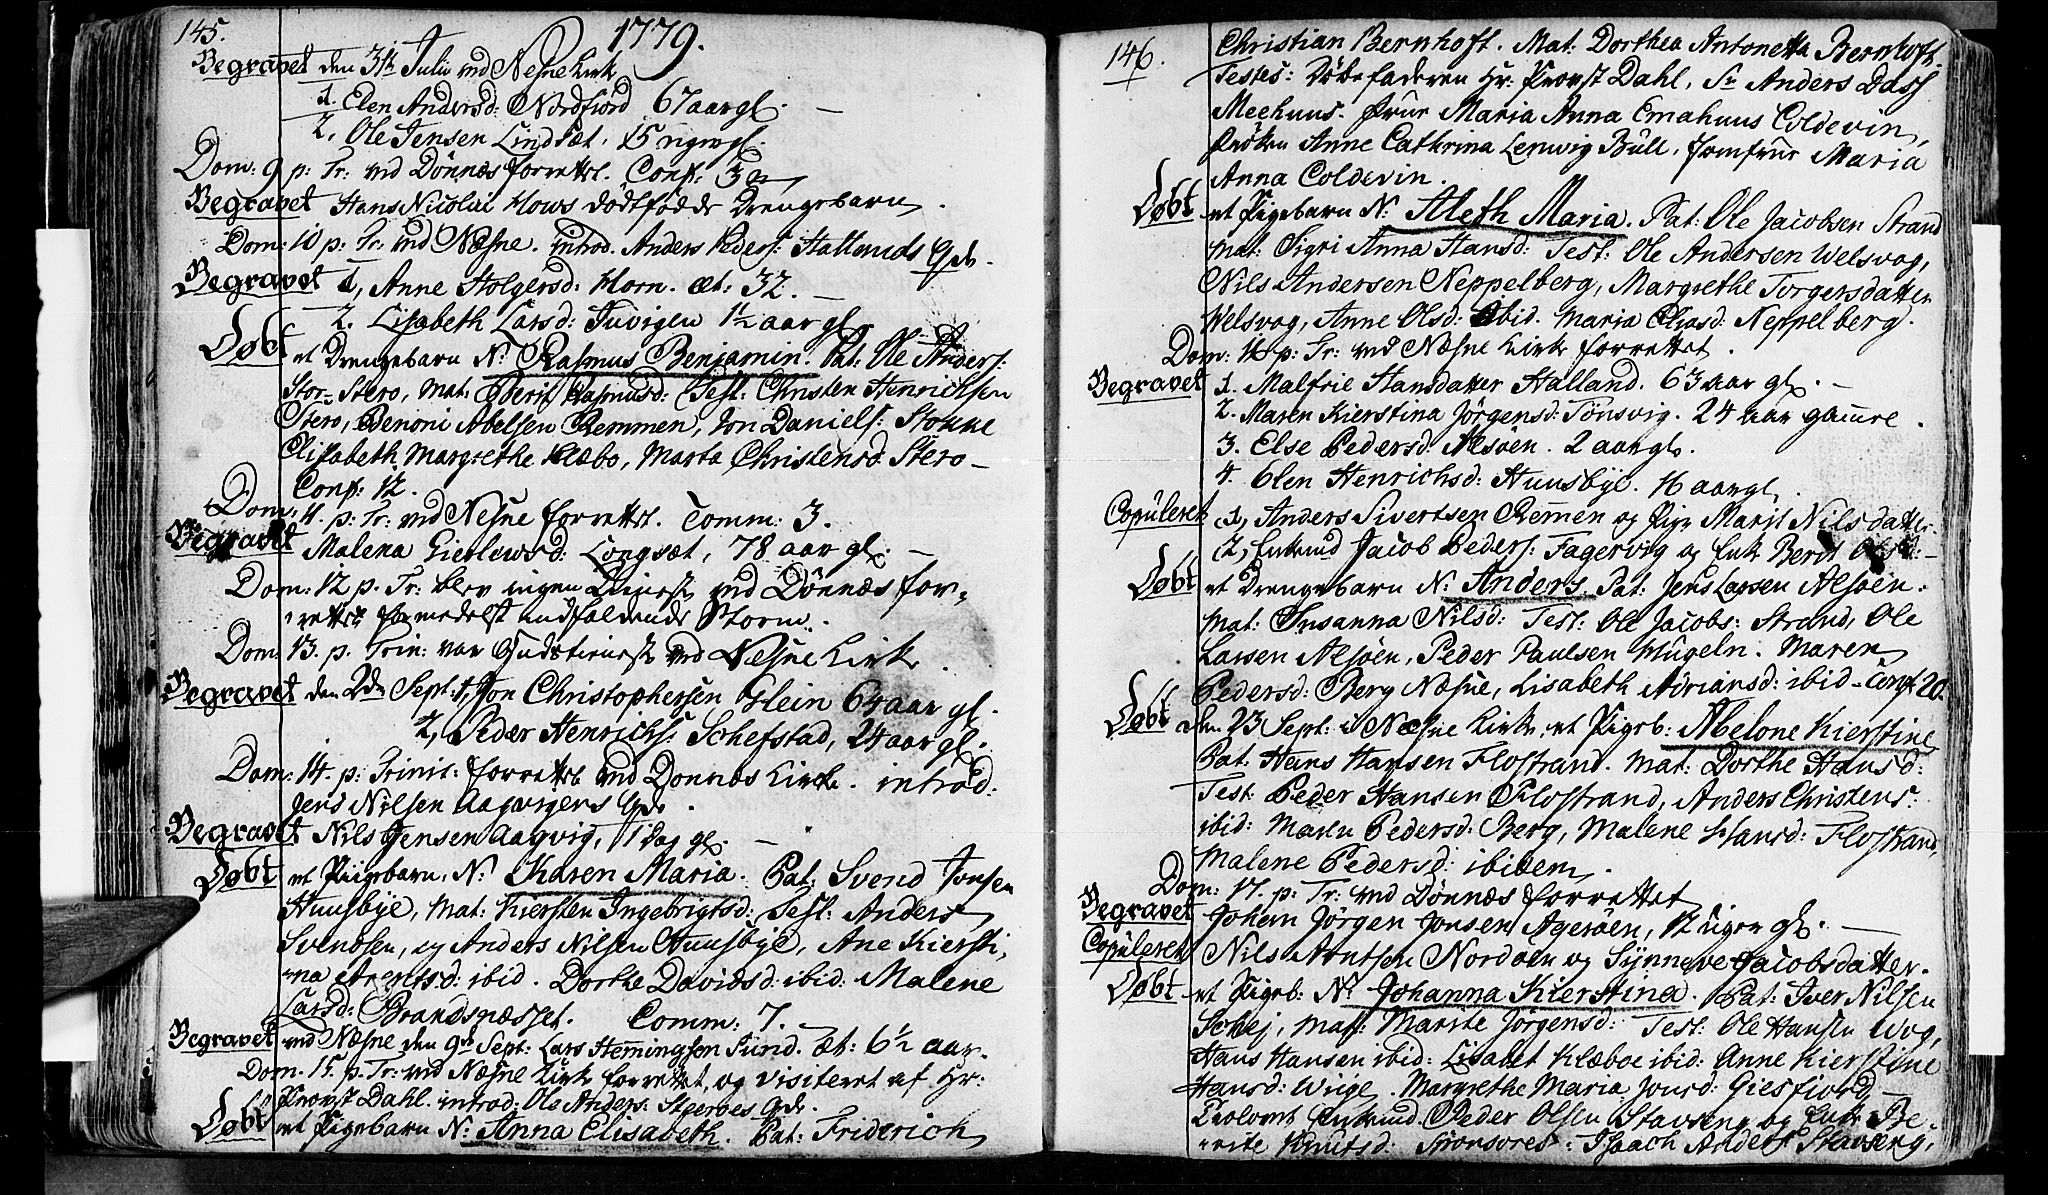 145.
1779.
Begravet den 31te Julii ved Nesne Kirke
1. Elen Andersd: Nordfiord 67 aar gl. —
2, Ole Jensen Lindset, 15 uger gl.
Dom: 9 p: Tr: ved Dönnes forrettet. Conf: 32
Begravet Hans Nicolai Hows dödfödde Drengebarn.
Dom: 10 p: Tr: ved Nesne. introd. Anders Peders: Hallands Qde.
Begravet 1, Anne Holgersd: Horn. æt: 32. —
2. Lisabeth Larsd: Tuvigen 1½ aar gl.
Döbt et Drengebarn N: Rasmus Benjamin. Pat: Ole Anders:
Stor-Stero, Mat: Berit Rasmusd: Test: Christen Henrichsen
Stero, Benoni Abelsen Remmen, Jon Daniels: Stokke
Elisabeth Margrethe Klæbo, Marta Christensd: Stero —
Conf: 12.
Dom: 11. p: Tr: ved Nesne forrettet. Comm: 3.
Begravet Malena Gielewsd: Longset, 78 aar gl: —
Dom: 12 p. Tr: blev ingen Tieneste ved Dönnes for-
rettet formedelst indfaldende Storm.
Dom: 13. p. Trin: var Gudstieneste ved Nesne Kirke.
Begravet den 2den Sept: 1, Jon Christophersen Hein 64 aar gl.
2, Peder Henrichs: Schefstad, 24 aar gl.
Dom: 14. p: Trinit: forrettet ved Donnes Kirke. introd:
Jens Nilsen Aagvigens Qde.
Begravet Nils Jensen Aagvig, 1 Dag gl. —
Döbt et Piigebarn, N: Karen Maria. Pat: Svend Jonsen
Huusbye, Mat: Kiersten Ingebrigtsd: Test: Anders
Svendsen, og Anders Nilsen Huusbye, Ane Kiersti-
na Arentsd: ibid. Dorthe Davidsd: ibid: Malene
Larsd: Brandsnæsset. Comm: 7.
Begravet ved Næsne den 9de Sept: Lars Hemingsen Sund. æt: 6½ aar.
Dom. 15. p. Tr: ved Næsne Kirke forrettet, og visiteret af Hr:
Provst Dahl. introd: Ole Anders: Qde.
Döbt et Pigebarn N: Anna Elisabeth. Pat: Friderich
146.
Christian Bernhoft. Mat: Dorthea Antonetta Bernhoft.
Testes: Döbefaderen Hr: Provst Dahl, Sr Anders Dass
Meehuus. Frue Maria Anna Emahuus Coldevin,
Fröken Anne Cathrina Lenwig Bull, Jomfrue Maria
Anna Coldevin.
Döbt et Pigebarn N: Aleth Maria. Pat: Ole Jacobsen Strand
Mat: Sigri Anna Hansd: Test: Ole Andersen Welsvog,
Nils Andersen Neppelberg, Margrethe Torgersdatter
Welsvog, Anne Olsd: ibid. Maria Eliasd: Neppelberg.
Dom: 16 p: Tr: ved Næsne Kirke forrettet.
Begravet 1. Malfrie Hansdatter Halland. 63 aar gl. —
2. Maren Kierstina Jörgensd: Tönsvig. 24 aar gamre.
3. Else Pedersd: Alsöen. 2 aar gl.
4. Elen Henrichsd: Huusbye. 16 aar gl.
Copuleret 1, Anders Sivertsen Remen og Pige Marit Nilsdatter.
2, Enkemd Jacob Peders: Fagervig og Enke Berit Olsd: —
Döbt et Drengebarn N: Anders. Pat: Jens Larsen Alsöen.
Mat: Susanna Nilsd: Test: Ole Jacobs: Strand, Ole
Larsen Alsöen, Peder Paulsen Hugeln. Maren
Pedersd: Berg Næsne, Lisabeth Adriansd: ibid — Conf: 20.
Döbt den 23 Sept: i Næsne Kirke, et Pigeb: Abelone Kierstine
Pat: Hans Hansen Flostrand. Mat: Dorthe Hansd:
Test: Peder Hansen Flostrand, Anders Christens:
ibid: Maren Pedersd: Berg, Malene Hansd: Flostrand,
Malene Pedersd: ibidem.
Dom: 17. p: Tr: ved Dönnes forrettet
Begravet Johan Jörgen Jonsen Ageröen, 12 uger gl. —
Copuleret Nils Arntsen Nordöen og Synneve Jacobsdatter.
Döbt et Pigeb: N: Johanna Kierstina. Pat: Iver Nilsen
Schej, Mat: Marite Jörgensd: Test: Ole Hansen Wog,
Hans Hansen ibid: Lisabet Klæboe ibid: Anne Kierstine
Hansd: Wiige. Margrethe Maria Jonsd: Giesfiord,
Trolovet Enkemd Peder Olsen Stavseng og Enke Be-
rite Knutsd: Sponsores: Isaach Anders: Stavseng,